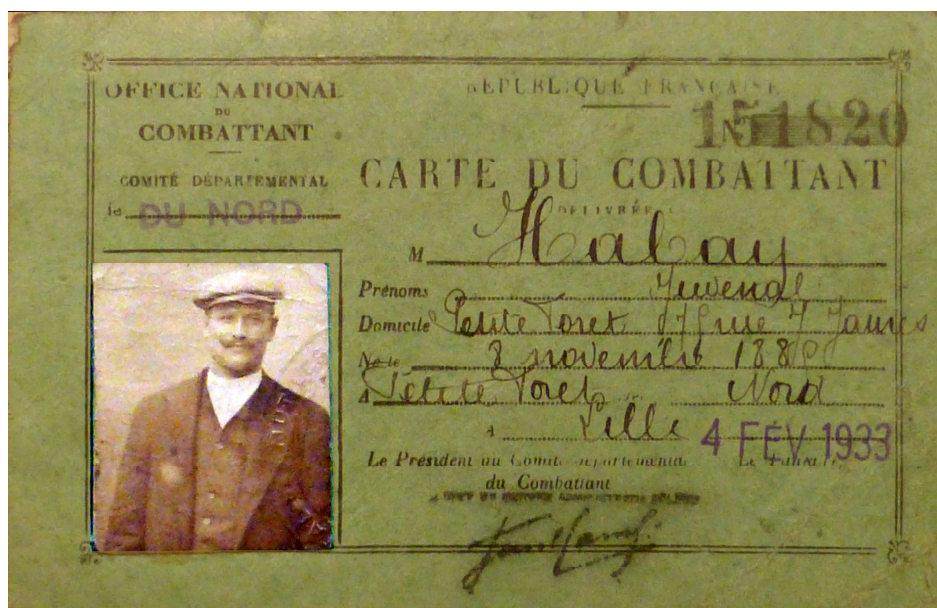 OFFICE NATIONAL
DU
COMBATTANT
COMITÉ DÉPARTEMENTAL
de DU NORD
RÉPUBLIQUE FRANÇAISE
No 151820
CARTE DU COMBATTANT
DÉLIVRÉE
M Habay
Prénoms Juvenal
Domicile Petite Foret rue J Jaurès
Né le 8 novembre
à Petite Foret Nord
A Lille 4 FEV 1933
Le Président du Comité départemental
du Combattant